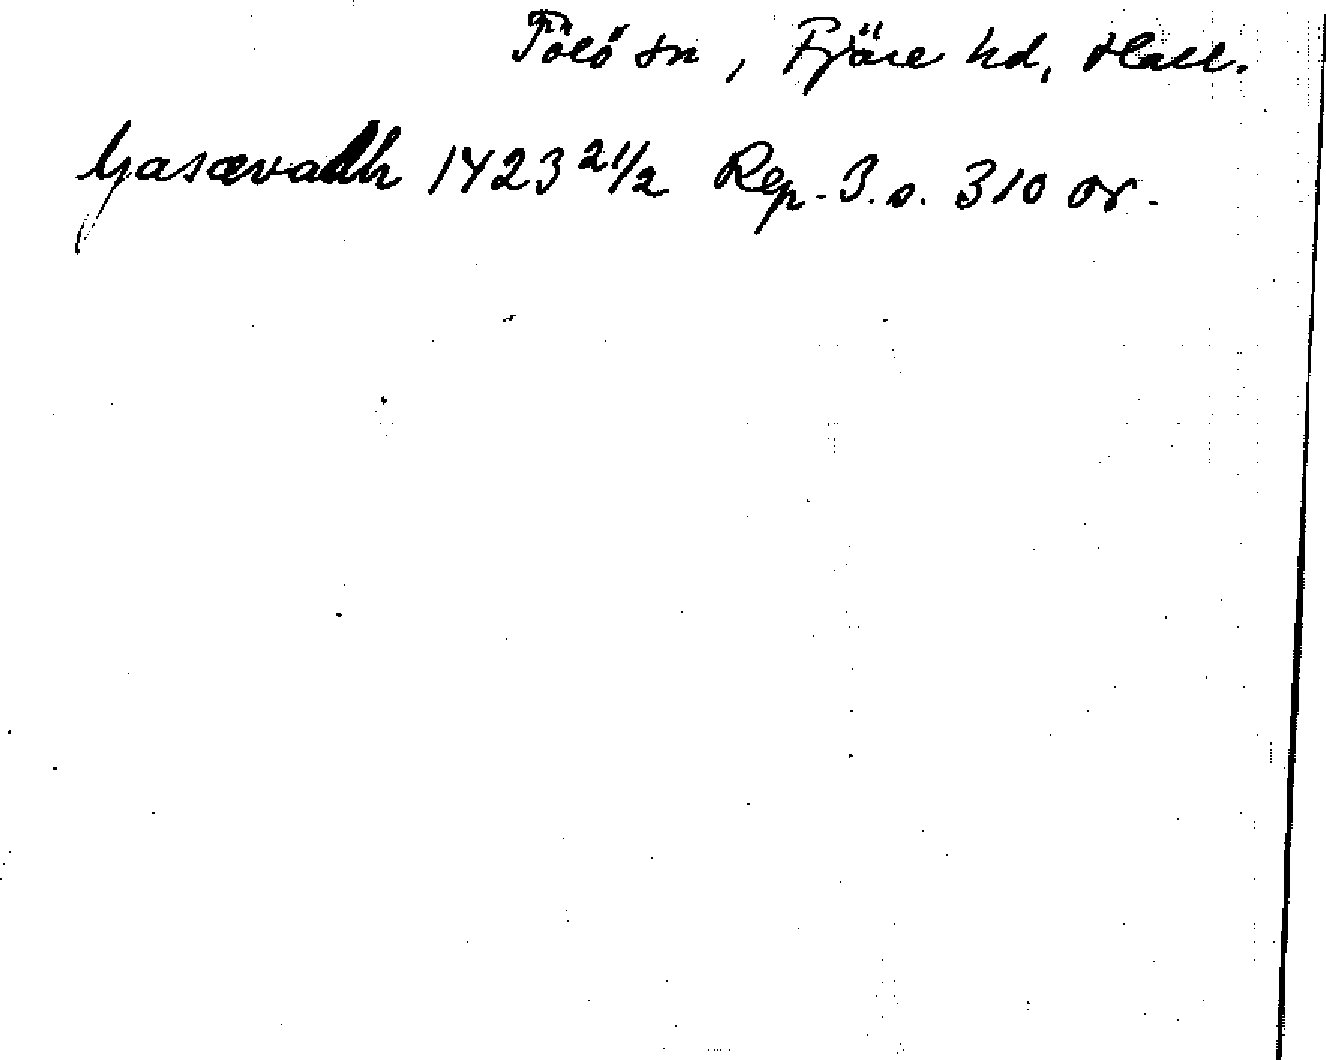 Tölö sn, Fjäre hd, Hall.
Gasævadh 1423 21/2 Rep. 3. s. 310 or.